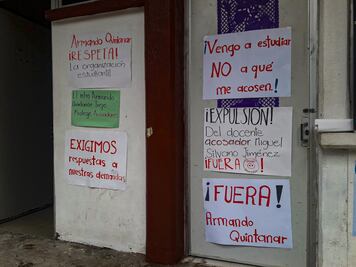 Armando Quintanar
¡RESPETA!
La organización
estudiantil
El intro Armando
Quintanar Trejo
Protege Acosadores
EXIGIMOS
respuestas a
nuestras demandas
¡Vengo a estudiar
NO a qué
me acosen!
¡EXPULSIÓN!
Del docente
acosador Miguel
Silvano Jiménez
¡FUERA!
¡FUERA!
Armando
Quintanar